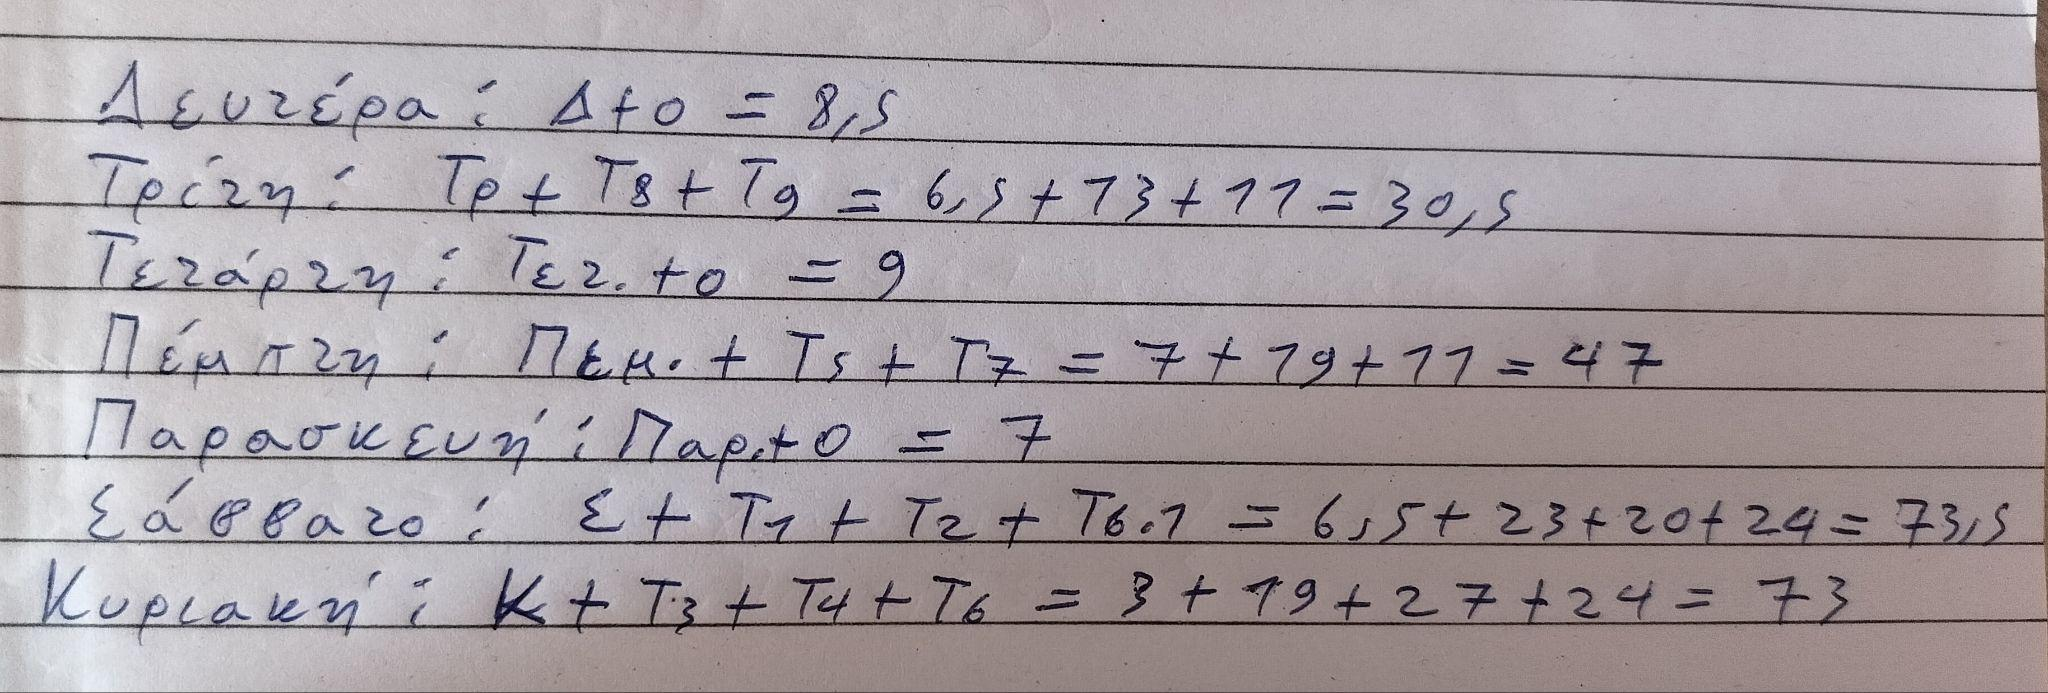 Δευτέρα: Δ+0 = 8,5
Τρίτη: Τρ + Τ8 + Τ9 = 6,5 + 13 + 11 = 30,5
Τετάρτη: Τετ. +0 = 9
Πέμπτη: Πεμ. + Τ5 + Τ7 = 7 + 19 + 11 = 47
Παρασκευή: Παρ.+0 = 7
Σάββατο: Σ + Τ1 + Τ2 + Τ6.1 = 6,5 + 23 + 20 + 24 = 73,5
Κυριακή: Κ + Τ3 + Τ4 + Τ6 = 3 + 19 + 27 + 24 = 73